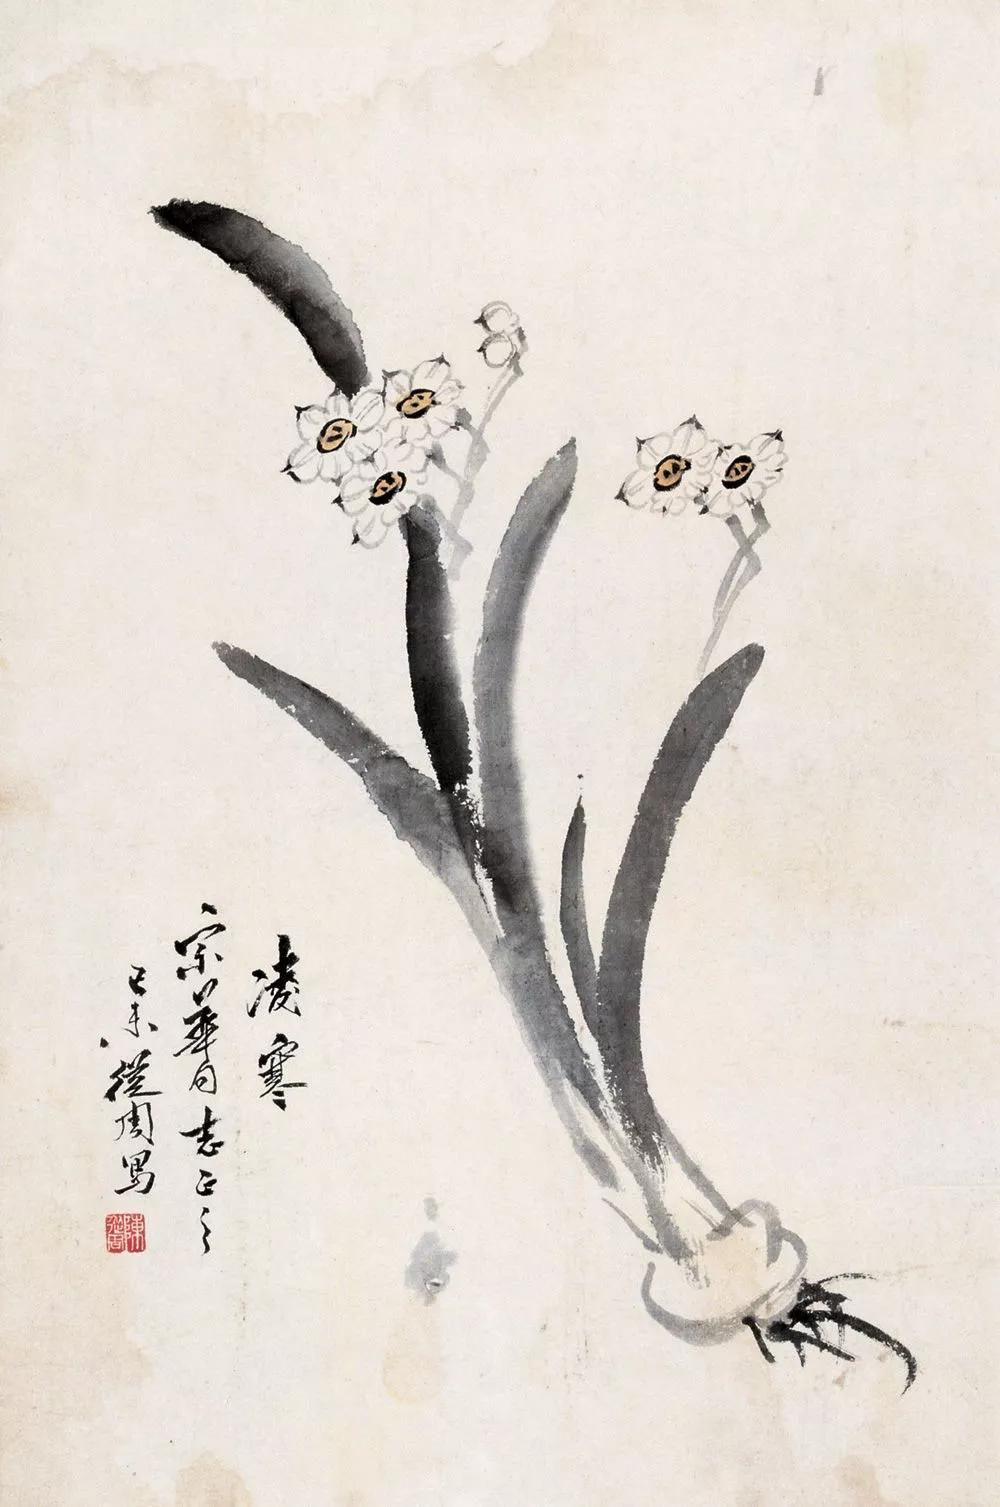 凌寒
宗華同志正之
己未從周寫
陳從周